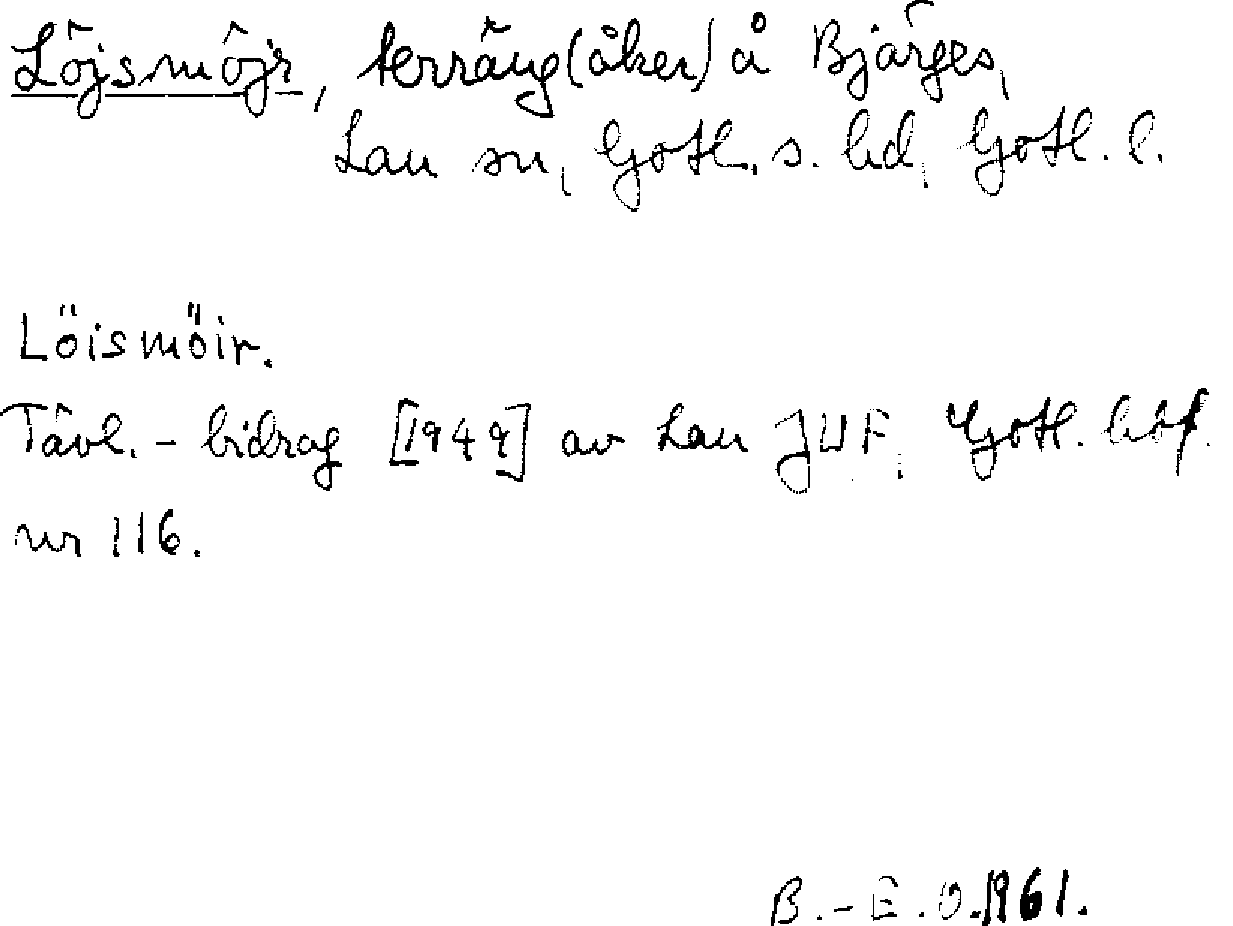 Löjsmöjr, terräng(åker) å Bjärges,
Lau sn, Gotl. s. hd, Gotl. l.
Löismöir.
Tävl.-bidrag [1949] av Lau JUF, Gotl. hbf.
nr 116.
B.-E. O. 1961.